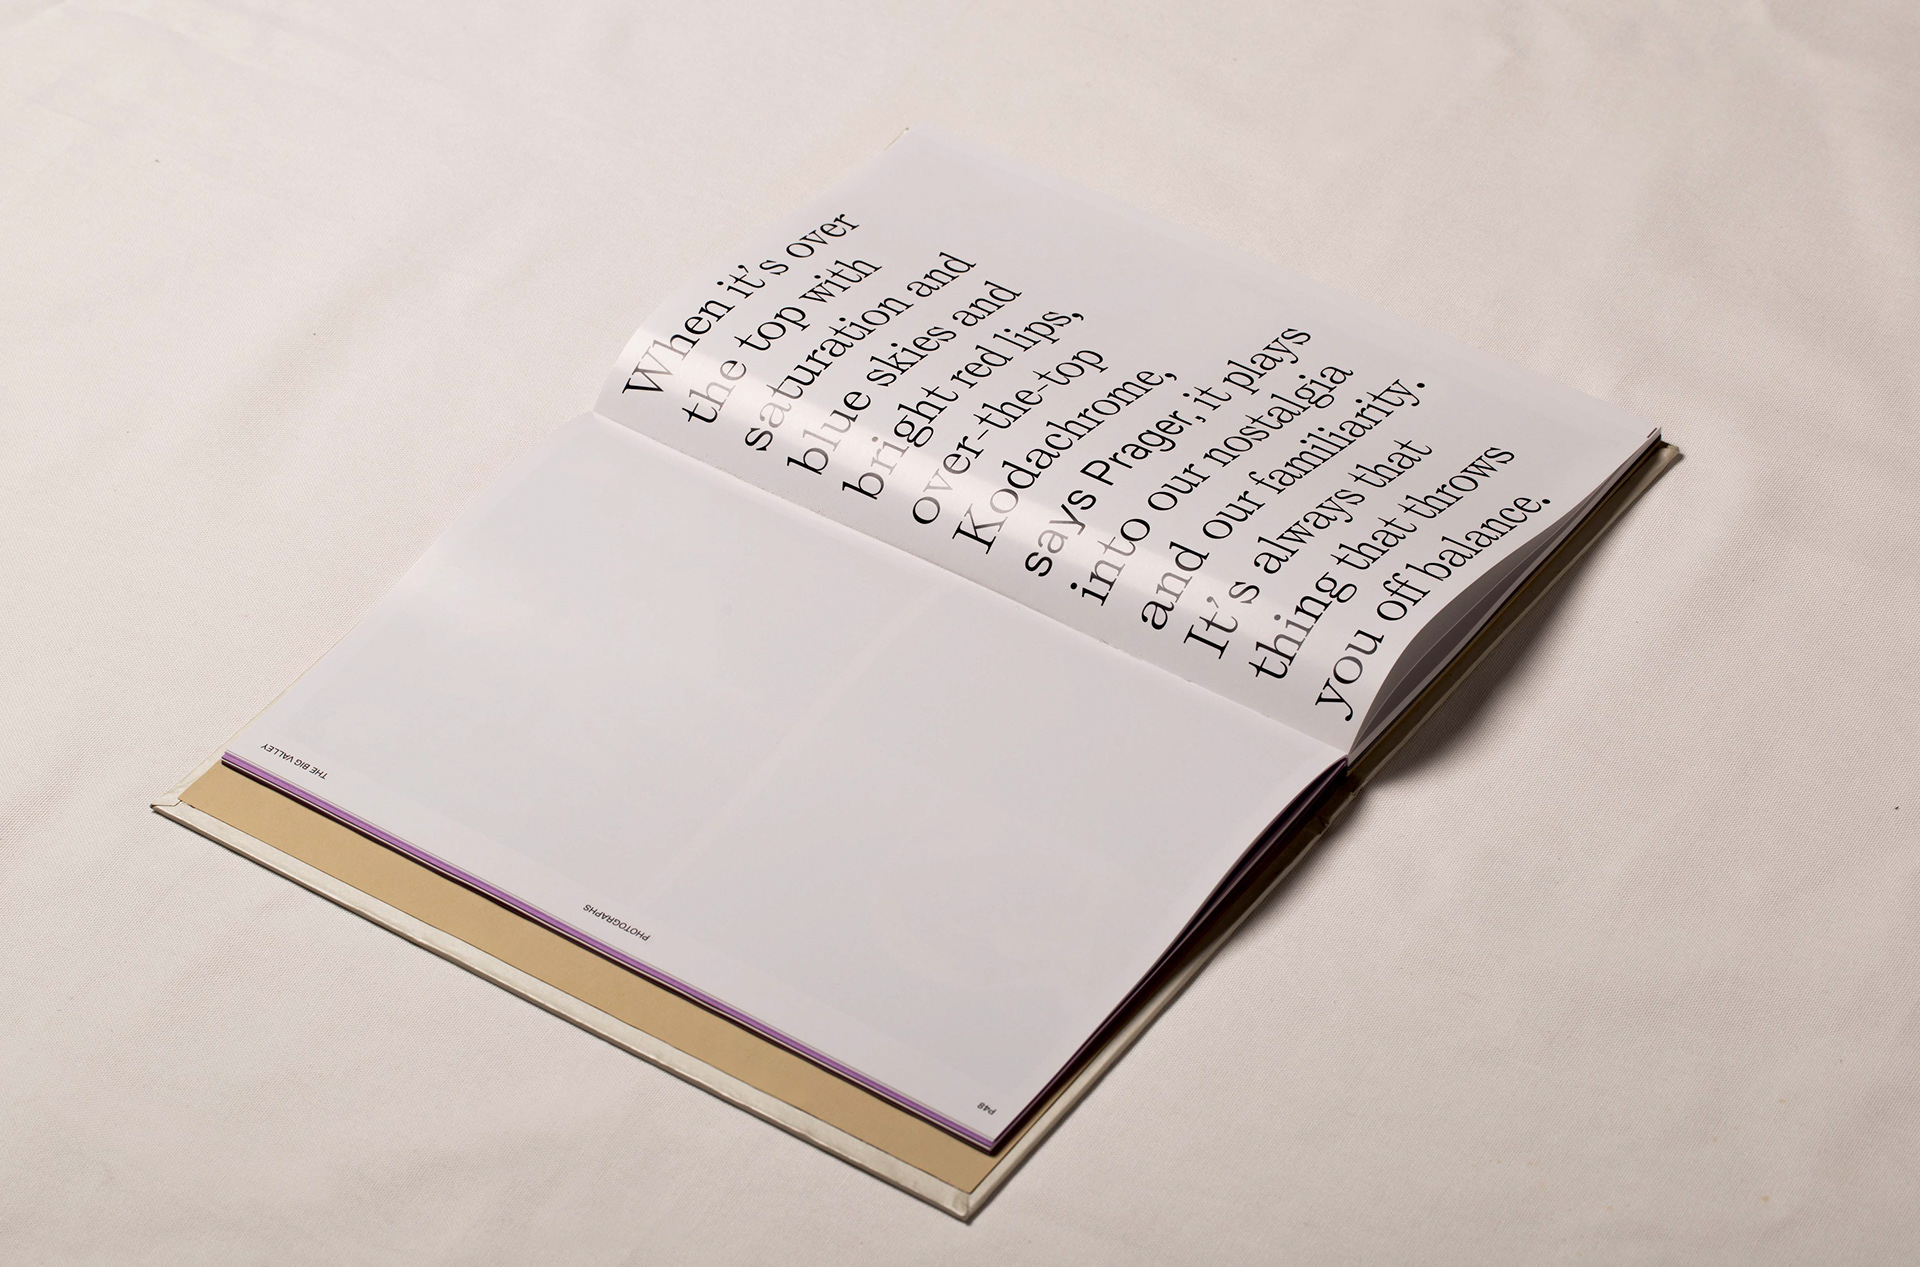 When it's over
the top with
saturation and
blue skies and
bright red lips,
over-the-top
Kodachrome,
says Prager, it plays
into our nostalgia
and our familiarity.
It's always that
thing that throws
you off balance.
THE BIG VALLEY
PHOTOGRAPHS
P48